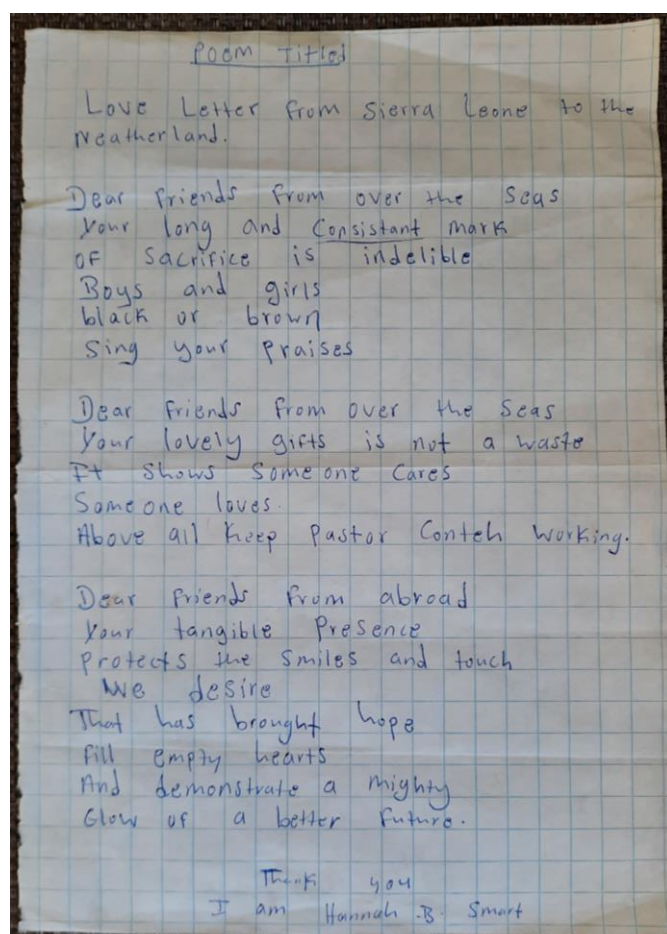 Poem Titled
Love Letter from Sierra Leone to the
Neatherland.
Dear Friends From over the Seas
Your long and Consistant mark
OF Sacrifice is indelible
Boys and girls
black or brown
Sing your Praises
Dear Friends From over the Seas
Your lovely gifts is not a waste
It Shows Someone Cares
Someone loves.
Above all Keep Pastor Conteh Working.
Dear Friends From abroad
Your tangible Presence
Protects the Smiles and touch
We desire
That has brought hope
Fill empty hearts
And demonstrate a mighty
Glow of a better Future.
Thank you
I am Hannah .B. Smart